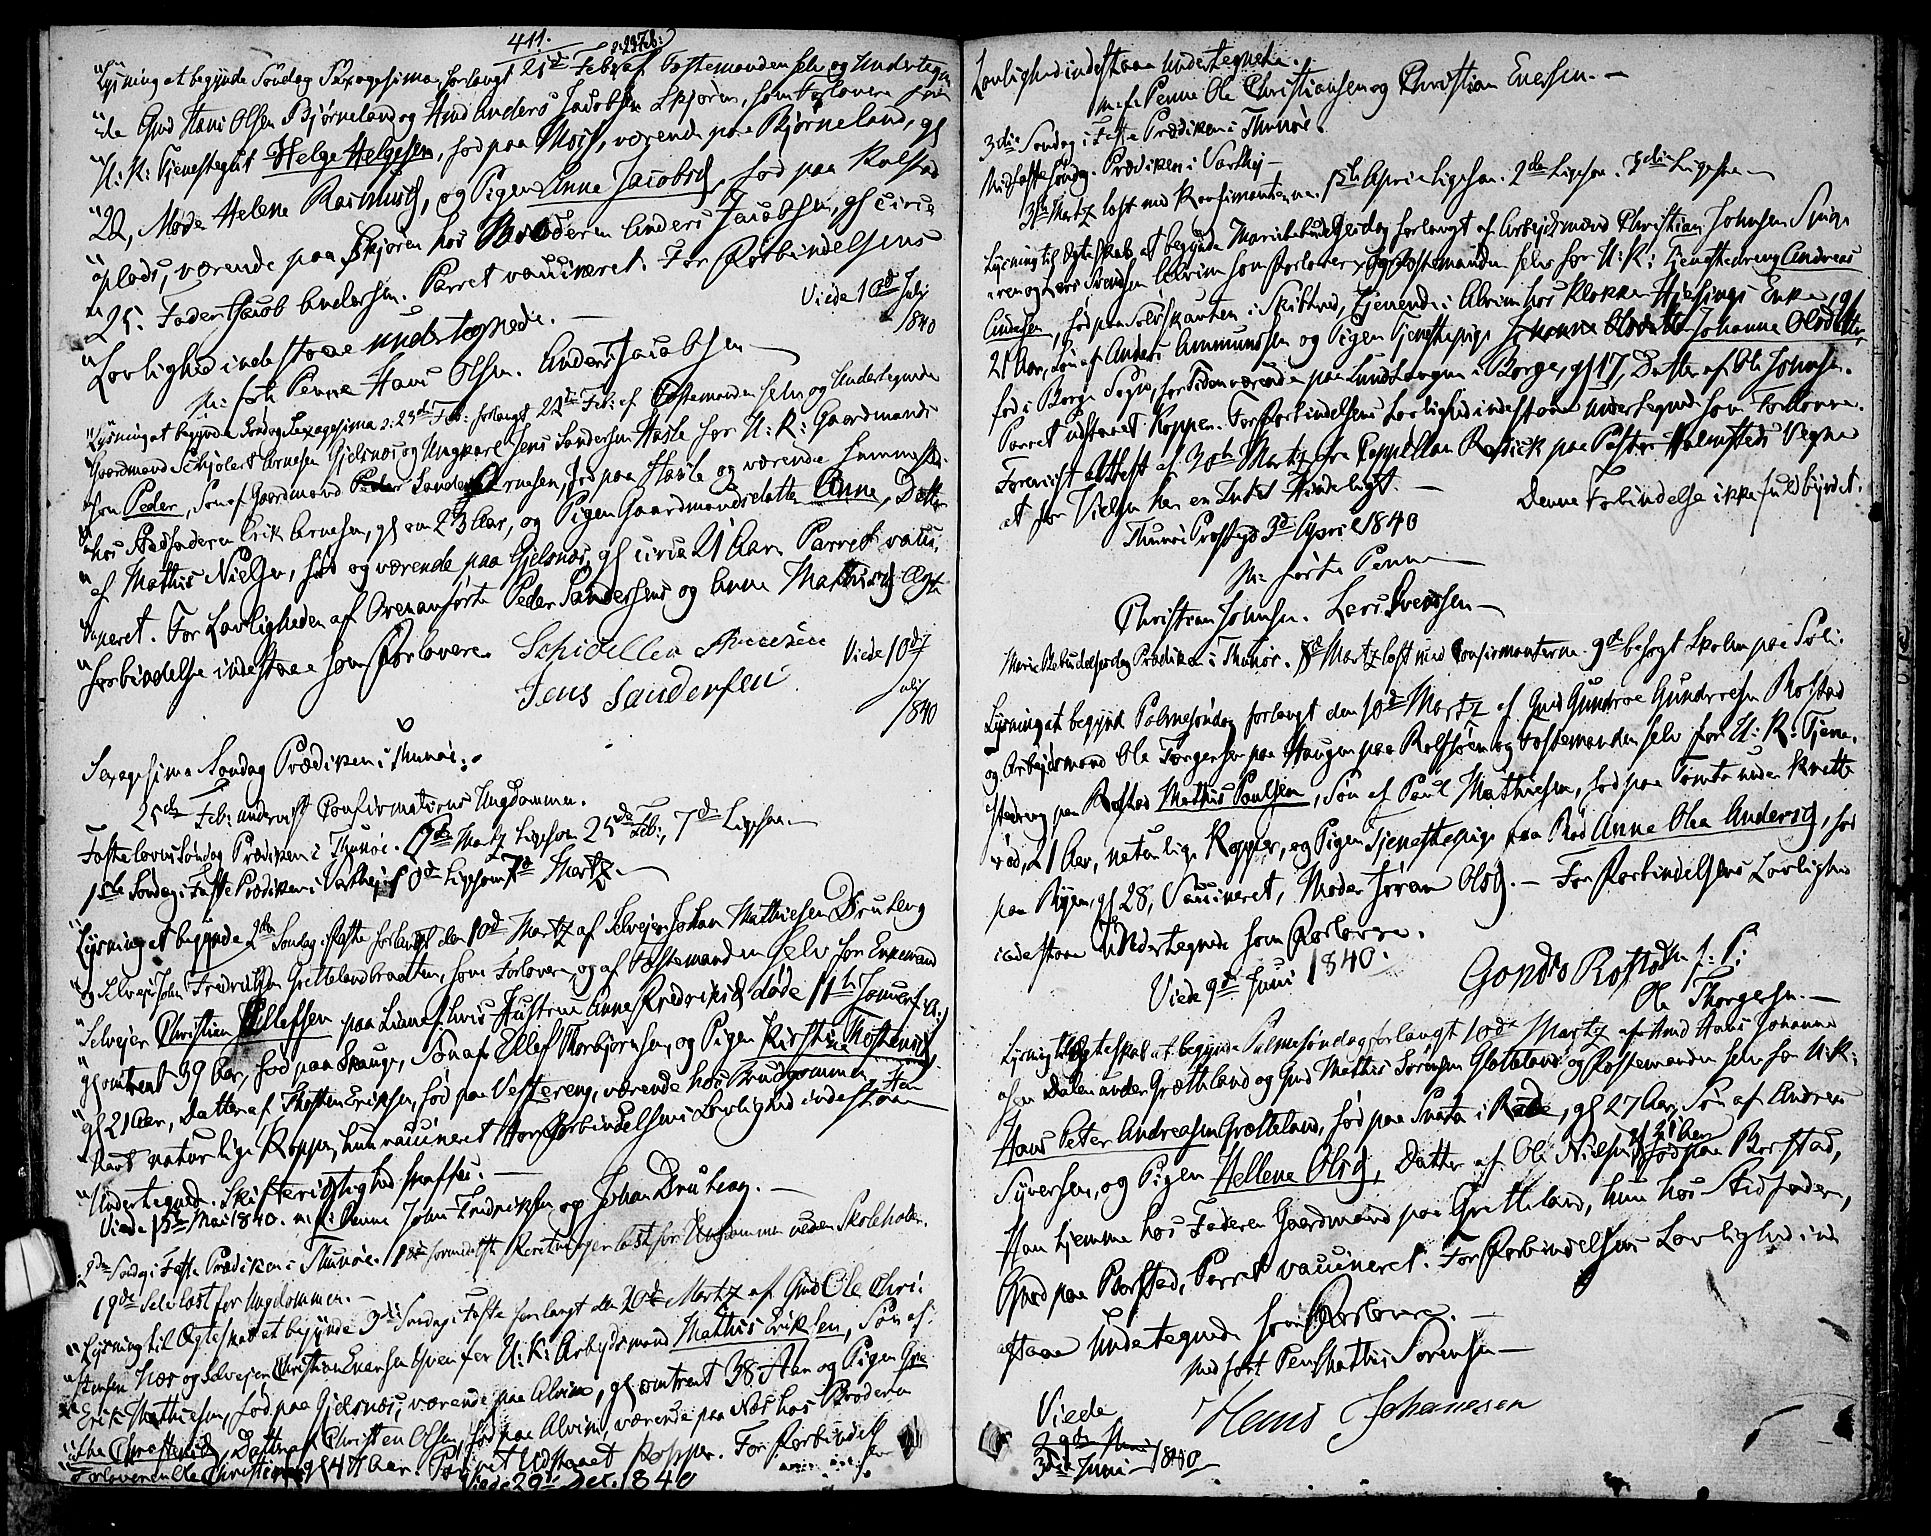 411.
Lysning at begynde Søndag Sexagesima ɔ: 23 Feb: forlangt 21de Feb: af Fæstemanden selv og Undertegn
de Gmd Hans Olsen Bjørneland og Hmd Anders Jacobsen Skjøren, som Forlovere for
U: K: Tjenestegut Helge Helgesen, fød paa Moss, værende paa Bjørneland, gl
22, Moder Helene Rasmusd, og Pigen Anne Jacobsd, fød paa Rolfstad
plads, værende paa Skjøren hos Broderen Anders Jacobsen, gl circa
25. Fader Jacob Andersen. Parret vaccineret. For Forbindelsens
Lovlighed indestaae undertegnede. Viede 10de Julj 1840
m: før: Penne Hans Olsen. Anders Jacobsen
Lysning at begynde Søndag Sexagesima ɔ: 23de Feb: forlangt 22de Feb: af Fæstemanden selv og Undertegnede
Gaardmand Schjølert Arnesen Gjelsnøs og Ungkarl Jens Sandersen Hasle for U: K: Gaardmands
søn Peder, Søn af Gaardmand Sander Arnesen, fød paa Hasle og værende sammesteds
hos Stedfaderen Erik Arnesen, gl om 23 Aar, og Pigen Gaardmandsdatter Anne, Datter
af Mathis Nielsen, fød og værende paa Gjelsnøs, gl circa 21 Aar. Parret vacci
neret. For Lovligheden af Ovenanførte Peder Sandersens og Anne Mathisd Ægte
forbindelse indestaae som Forlovere
Viede 10de Julj 1840
Jens Sandersen
Sexagesima Søndag Prædiken i Thunøe.
25de Feb: underviist Confirmations Ungdommen.
Fastelavns Søndag Prædiken i Thunøe. Martz Ligesom 25de Feb:, 7de Ligesom
1ste Søndag i Faste Prædiken i Varthej. 10de Ligesom 7de Martz.
Lysning at begynde 2den Søndag i Faste forlangt den 10de Martz af Selvejer Johan Mathiesen Druberg
og Selvejer John Fredriksen Grettelandbraatten, som Forlovere, og af Fæstemanden selv for Enkemand
Selvejer Christian Ellefsen paa Liane, hvis Hustrue Anne Fredriksd døde 11te Januar
gl omtrent 39 Aar, fød paa Skauge, Søn af Ellef Thorbjørnsen, og Pigen Kirstine Thostensd
gl 21 Aar, Datter af Thosten Eriksen, fød paa Vestereng, værende hos Brudgommen. Han
havt naturlige Kopper, hun vaccineret. For Forbindelsens Lovlighed indestaae
Undertegnede. Skifterigtighed skaffes.
Viede 15de Mai 1840. m: f: Penne John Fredriksen og Johan Druberg.
2den Søndag i Faste Prædiken i Thunøe. 18de
19de Selv læst for Ungdommen.
Lysning til Ægteskab at begynde 3die Søndag i Faste forlangt den 20de Martz af Gmd Ole Chri
stensen Næs og Selvejer Christian Evensen for U: K: Arbejdsmand Mathis Eriksen, Søn af
Erik Mathiesen, fød paa Gjelsnøs, værende paa Alvim, gl omtrent 38 Aar og Pigen
Christensd, Datter af Christen Olsen, fød paa Alvim, værende paa Næs hos Broderen
Forloveren Ole Christensen, gl 44 Aar. Parret Udstaaet Kopper. For Forbindel
Viede 29de Dec. 1840
Lovlighed indestaae undertegnede.
m: f: Penne Ole Christiansen og Christian Evensen.
3die Søndag i Faste Prædiken i Thunøe.
Midfaste Søndag Prædiken i Varthej
31te Martz læst med Konfirmanterne. 1ste April Ligesom. 2den Ligesom. 3die Ligesom
Lysning til Ægteskab at begynde Mariebebudelsesdag forlangt af Arbejdsmand Christian Johnsen
ren og Lars Svendsen Alvim som Forlovere, og Fæstemanden selv for U: K: Tjenestedreng Andreas
Andersen, fød paa Solvskauten i Skibtvedt, tjenende i Alvim hos Klokker Hjelsings Enke, gl
21 Aar, Søn af Anders Ammunssen og Pigen Tjenestepige Johanne Olsdatter
fød i Borge Sogn, for Tiden værende paa Lundshaugen i Borge, gl 17, Datter af Ole Johnsen.
Parret udstaaet Kopper. For Forbindelsens Lovlighed indestaae Undertegnede som Forlovere.
Foreviist Attest af 30te Martz fra Cappellan Rodick paa Pastor Holmsteds Vegne
at for Vielsen her en Intet Hinderligt. Denne Forbindelse ikke fuldbyrdet.
Thunøe Præstegd 3de April 1840
m: førte Penne
Christian Johnsen. Lars Svendsen
Marie Bebudelsesdag Prædiken i Thunøe. Martz læst med Confirmanterne. 9de besøgt Skolen paa Sol
Lysning at begynde Palmesøndag forlangt den 10de Martz af Gmd Gundroe Gundersen Rolstad
og Arbejdsmand Ole Torgersen paa Haugen paa Rolfsøen og Fæstemanden selv for U: K: Tjene
stedreng paa Rostad Mathis Paulsen, Søn af Paul Mathiesen, fød paa Tomta under Kvette
rød, 21 Aar, naturlige Kopper, og Pigen Tjenestepige paa Røs Anne Olea Andersd, fød
paa Ryen, gl 28, Vaccineret, Moder Jøran Olsd. For Forbindelsens Lovlighed
indestaae Undertegnede som Forlovere.
Viede 9de Juni 1840.
Ole Thorgersen.
Lysning til Ægteskab at begynde Palmesøndag forlangt 10de Martz af Hmd Hans Johanne
sen Dalen under Grætteland og Gmd Mathis Sørensen Glatteland og Fæstemanden selv for U: K:
Hans Peter Andreasen Grætteland, fød paa Snata i Raade, gl 27 Aar, Søn af Andreas
Syversen, og Pigen Hellene Olsd, Datter af Ole Nielsen gl 21 Aar fød paa Borstad,
Han hjemme hos Faderen Gaardmand paa Grætteland, hun hos Stedfaderen,
Gmd paa Borstad, Parret vaccineret. For Forbindelsens Lovlighed ind
estaae Undertegnede som Forlovere.
med ført Pen Mathis Sørensen
Hans Johanesen
Viede
29de Juni
3die Juni 1840